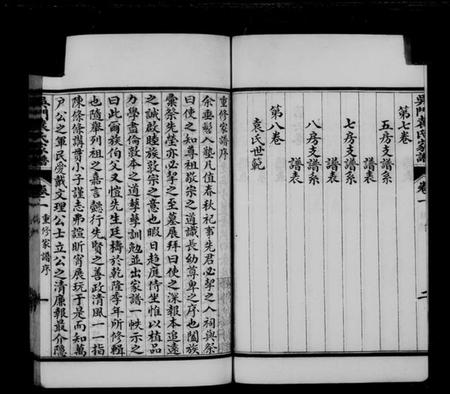 第七卷
五房支譜系
譜表
七房支譜系
譜表
八房支譜系
譜表
第八卷
袁氏世範
吳門袁氏家譜
卷一
二
重修家譜序
余垂髫入塾凡值春秋祀事先君必挈之入祠與祭
曰使之知尊祖敬宗之道識長幼尊卑之序也闔族
彙祭先塋亦必挈之至墓展拜曰使之深報本追遠
之誠啟睦族敦宗之意也暇日趨庭侍坐惟以植品
力學盡倫敦本之道諄諄訓勉並出家譜一帙示之
曰此爾族伯父又愷先生廷檮於乾隆季年所修輯
也隨舉列祖之嘉言懿行先賢之善政清風一一指
陳條條講貫小子謹志弗諼昕宵展玩于是而知萬
戶公之軍民愛戴文理公士立公之清廉報最介隱
吳門袁氏家譜
卷一
重修家譜序
一